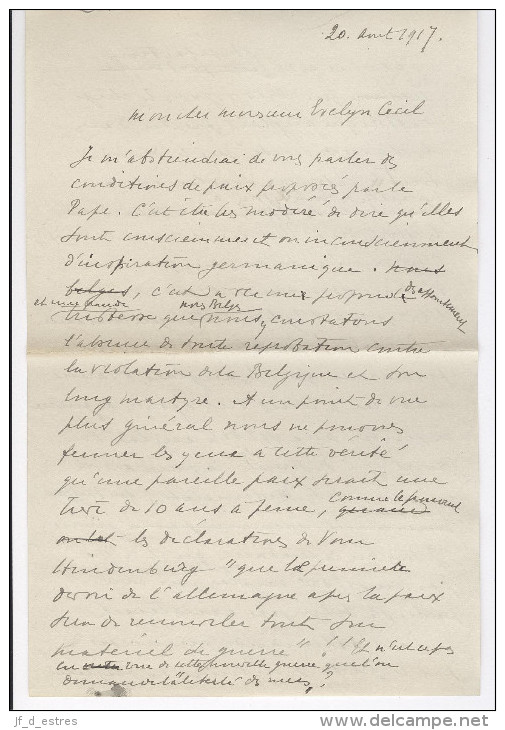 20. Aout 1917.
mon cher monsieur Evelyn Cecil
Je m'abstiendrai de vous parler des
conditions de paix proposées par le
Pape. C'est être très modéré de dire qu'elles
sont consciemment ou inconsciemment
d'inspiration germanique. nous
belges, c'est avec une profonde désappointement
et une grande tristesse que nous Belges nous, constatons
l'absence de toute reprobation contre
la violation de la Belgique et son
long martyre. A un point de vue
plus général nous ne pouvons
fermer les yeux à cette vérité
qu'une pareille paix serait une
treve de 10 ans à peine, comme le prouvent
les déclarations de Von
Hindenburg "que le premier
devoir de l'allemagne apres la paix
sera de renouveler tout son
matériel de guerre"!! Et n'est ce pas
en vue de cette nouvelle guerre que l'on
demande la liberté des mers?
jf_d_estres
www.delcampe.net